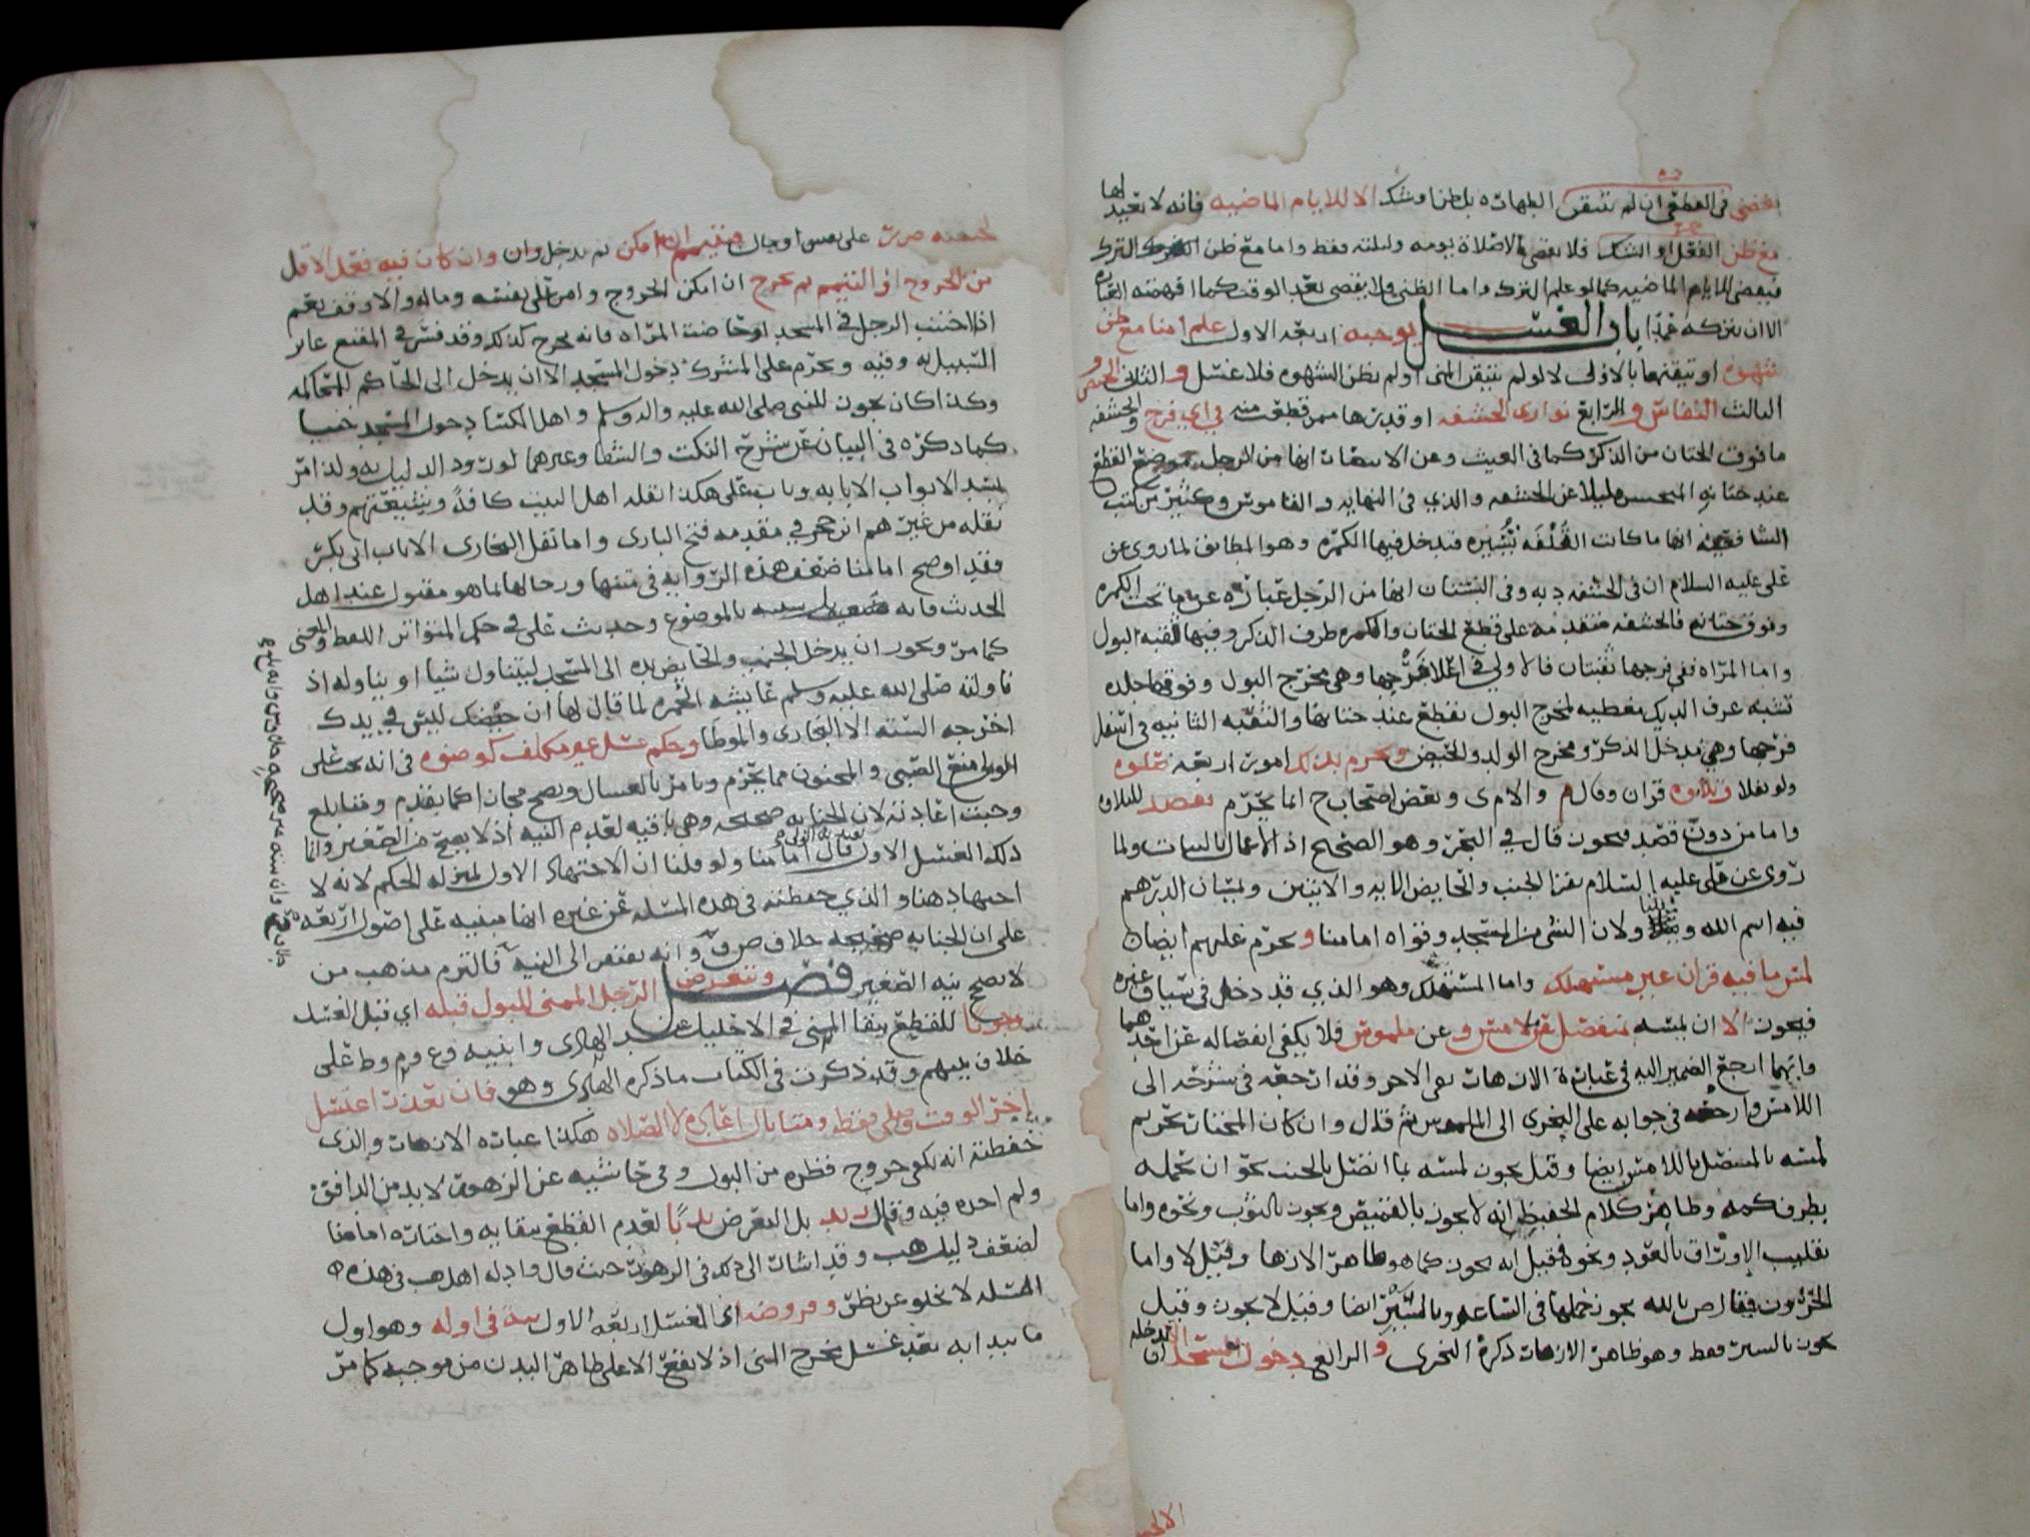 في القطعي ان لم يتيقن الطهارة بل ظن او شك الا للايام الماضيه فانه لا يعيد لها
مع ظن الفعل او الشك فلا يقضي الا صلاة يومه وليلته فقط واما مع ظن الترك
فيقضي للايام الماضيه كما لو علم الترك واما الظني فلا يقضي بعد الوقت كما افهمته العباره
الا ان يتركه عمدا باب الغسل يوجبه اربعه الاول علم امنا مع ظن
شهوه او تيقنها بالاولى لا لو لم يتيقن المني او لم يظن الشهوه فلا غسل و الثاني الحيض و
الثالث النفاس و الرابع توارى الحشفه او قدرها ممن قطعت منه في اي فرج والحشفه
ما فوق الختان من الذكر كما في الغيث وعن الانتصار انها من الرجل موضع القطع
عند ختانه المنحسر قليلا عن الحشفه والذي في النهايه والقاموس وكثير من كتب
الشافعيه انها ما كانت القلفه تستره فتدخل فيها الكمره وهو المطابق لما روي عن
علي عليه السلام ان في الحشفه ديه وفي البستان انها من الرجل عباره عن ما تحت الكمره
وفوق ختانه فالحشفه متقدمه على قطع الختان والكمره طرف الذكر وفيها ثقبه البول
واما المراه ففي فرجها ثقبتان فالاولى في اعلا فرجها وهي مخرج البول وفوقها جلده
تشبه عرف الديك مغطيه لمخرج البول تقطع عند ختانها والثقبه الثانيه في اسفل
فرجها وهي مدخل الذكر ومخرج الولد والحيض ويحرم بذلك امور اربعه
ولو نفلا وتلاوه قران وقال م والامري وبعض اصحاب ح انما يحرم بقصد للتلاوه
واما من دون قصد فيجوز قال في البحر وهو الصحيح اذ الاعمال بالنيات ولما
روي عن علي عليه السلام يقرا الجنب والحايض الايه والايتين ويمسان الدرهم
فيه اسم الله ويتناولان الشي من المسجد وقواه امامنا و يحرم عليهم ايضا
لمس ما فيه قران غير مستهلك واما المستهلك وهو الذي قد دخل في سياق غيره
فيجوز الا ان يمسه بمنفصل عن لامس و عن ملموس فلا يكفي انفصاله عن احدهما
وايهما ارجع الضمير اليه في عباره الازهار بقي الاخر وقد ارجعه في شرحه الى
اللامس وارجعه في جوابه على النجري الى الملموس ثم قال وان كان المختار تحريم
لمسه بالمتصل باللامس ايضا وقيل يجوز لمسه بما اتصل بالجنب نحو ان يحمله
بطرف كمه وظاهر كلام الحفيظ انه لا يجوز بالقميص ويجوز بالثوب ونحوه واما
تقليب الاوراق بالعود ونحوه فقيل انه يجوز كما هو ظاهر الازهار وقيل لا واما
الحروز فقال ص بالله يجوز حملها في الساعد وبالسير ايضا وقيل لا يجوز وقيل
يجوز بالسير فقط وهو ظاهر الازهار ذكره النجري و الرابع دخول المسجد
علي نفس او مال فيتيمم ان امكن ثم يدخل وان وان كان فيه فعل الاقل
من الخروج او التيمم ثم يخرج ان امكن الخروج وامن على نفسه وماله والا وقف نعم
اذا اجنب الرجل في المسجد او حاضت المراه فانه يخرج كذلك وقد فسر في المقنع عابر
السبيل به وفيه ويحرم على المشرك دخول المسجد الا ان يدخل الى الحاكم للمحاكمه
وكذا كان يجوز للنبي صلى الله عليه واله وسلم واهل الكسا دخول المسجد جنبا
كما ذكره في البيان عن شرح النكت والشفا وغيرهما لورود الدليل به ولذا امر
بسد الابواب الا بابه وباب علي هكذا نقله اهل البيت كافة وشيعتهم وقد
نقله من غيرهم ابن حجر في مقدمه فتح الباري واما نقل البخاري الا باب ابي بكر
فقد اوضح امامنا ضعف هذه الروايه في متنها ورجالها بما هو مقبول عند اهل
الحديث فانه بالموضوع وحديث علي في حكم المتواتر اللفظ والمعنى
كما مر ويجوز ان يدخل الجنب والحايض يده الى المسجد ليتناول شيا او يناوله اذ
ناولته صلى الله عليه وسلم عايشه الخمره لما قال لها ان حيضك ليس في يدك
اخرجه السته الا البخاري والموطا وحكم غسل غير مكلف كوضوه في انه يجب على
الولي منع الصبي والمجنون مما يحرم ويامر بالغسل ويصح مجازا كما تقدم ومتا بلغ
وجبت اعادته لان الجنابه صحيحه وهي باقيه لعدم النيه اذ لا يصح من الصغير وانما
ذلك الغسل الاول قال امامنا ولو قلنا ان الاجتهاد الاول بمنزله الحكم لانه لا
اجتهاد هنا والذي حفظته في هذه المسله عن غيره انها مبنيه على اصول اربعه
على ان الجنابه صحيحه خلاف ض ق وانه يفتقر الى النيه فالتزم مذهب من
لا يصح نيه الصغير فصل ويتعرض الرجل الممني للبول قبله اي قبل الغسل
وجوبا للقطع ببقا المني في الاحليل عند الهادي وابنيه وع وم وط على
خلاف بينهم وقد ذكرت في الكتاب ما ذكره الهادي وهو فان تعذر اغتسل
اخر الوقت وصلى فقط ومتا بال اعاده لا الصلاه هكذا عباره الازهار والذي
حفظته انه يكفي خروج قطره من البول وفي حاشيه عن الزهور لا بد من الدافق
ولم احده فيه وقال بل التعرض ندبا لعدم القطع ببقايه واختاره امامنا
لضعف دليل هب وقد اشار الى ذلك في الزهور حيث قال وادله اهل هب في هذه
المسله لا تخلو عن نظر وفروضه اي الغسل اربعه الاول نيه في اوله وهو اول
ما يبدا به بعد غسل مخرج المني اذ لا يقع الا على ظاهر البدن من موجبه كما مر